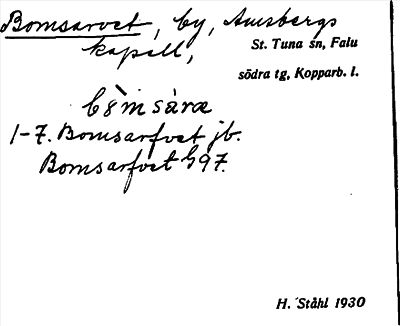 Bomsarvet, by, Amsbergs
kapell, St. Tuna sn, Falu
södra tg, Kopparb. l.
1-7. Bomsarfvet jb.
Bomsarfvet G97.
H. Ståhl 1930